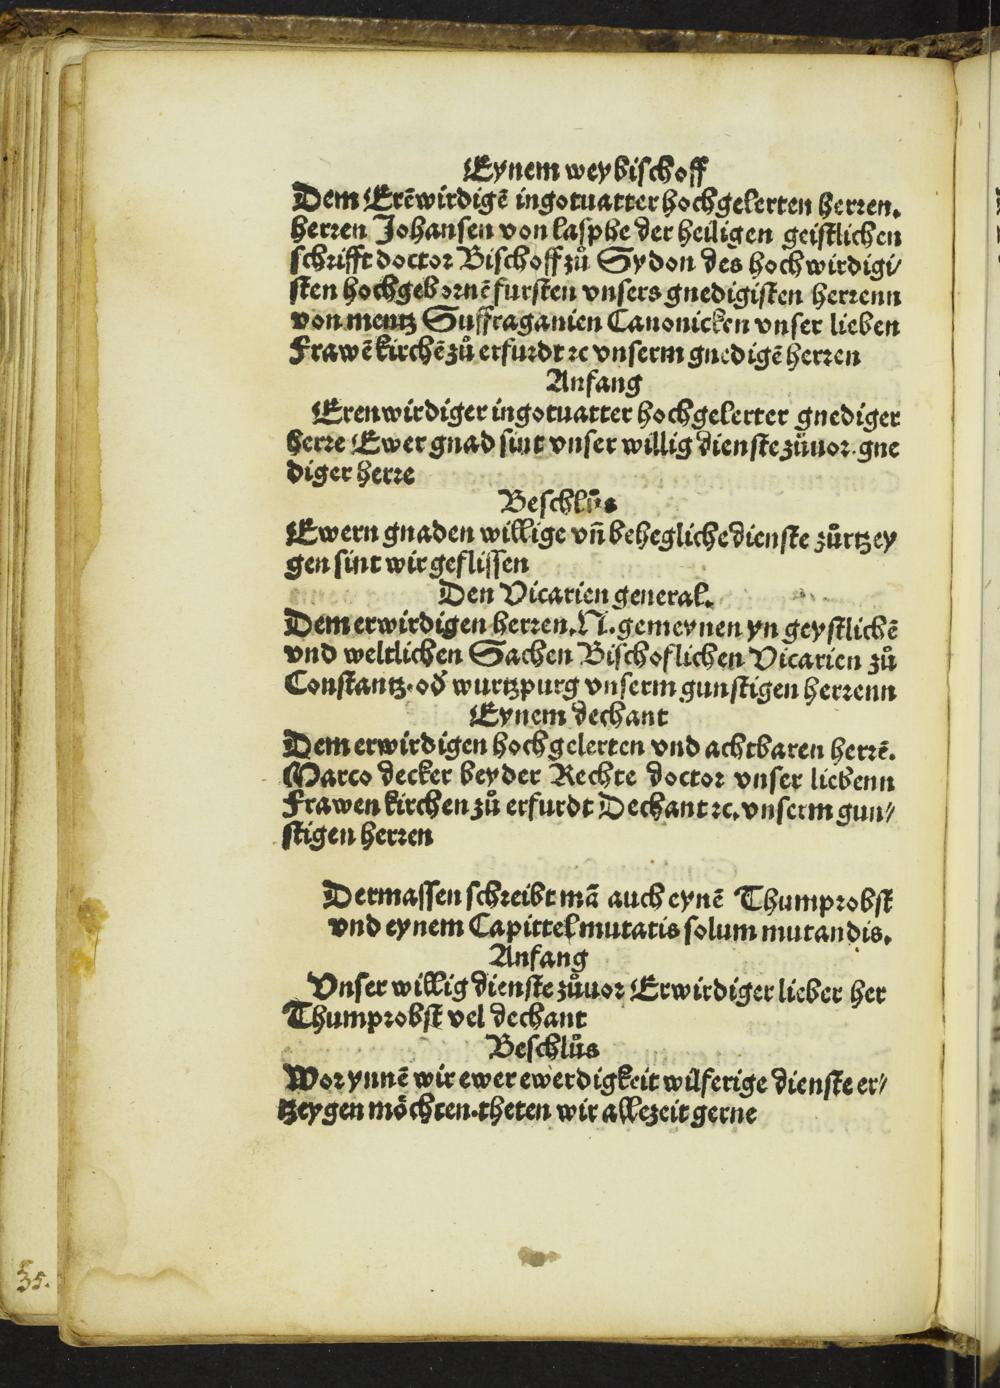 Eynem weybischoff
Dem Erẽwirdigẽ ingotuatter hochgelerten herren.
herren Johansen von laspbe der heiligen geistlichen
schrifft doctor Bischoff zů Sydon des hochwirdigi/
sten hochgebornẽ fursten vnsers gnedigisten herrenn
von mentz Suffraganien Canonicken vnser lieben
Frawẽ kirchẽ zů erfurdt ꝛc vnserm gnedigẽ herren
Anfang
Erenwirdiger ingotuatter hochgelerter gnediger
herre Ewer gnad sint vnser willig dienste zůuor. gne
diger herre
Beschlůs
Ewern gnaden willige vñ behegliche dienste zůrtzey
gen sint wir geflissen
Den Vicarien general.
Dem erwirdigen herren. N. gemeynen yn geystlichẽ
vnd weltlichen Sachen Bischoflichen Vicarien zů
Constantz. od̕ wurtzpurg vnserm gunstigen herrenn
Eynem dechant
Dem erwirdigen hochgelerten vnd achtbaren herrẽ.
Marco decker beyder Rechte doctor vnser liebenn
Frawen kirchen zů erfurdt Dechant ꝛc. vnserm gun/
stigen herren
Dermassen schreibt mã auch eynẽ Thumprobst
vnd eynem Capittel mutatis solum mutandis.
Anfang
Vnser willig dienste zůuor Erwirdiger lieber her
Thumprobst vel dechant
Beschlůs
Worynnẽ wir ewer ewerdigkeit wilferige dienste er/
tzeygen möchten. theten wir allezeit gerne
35.